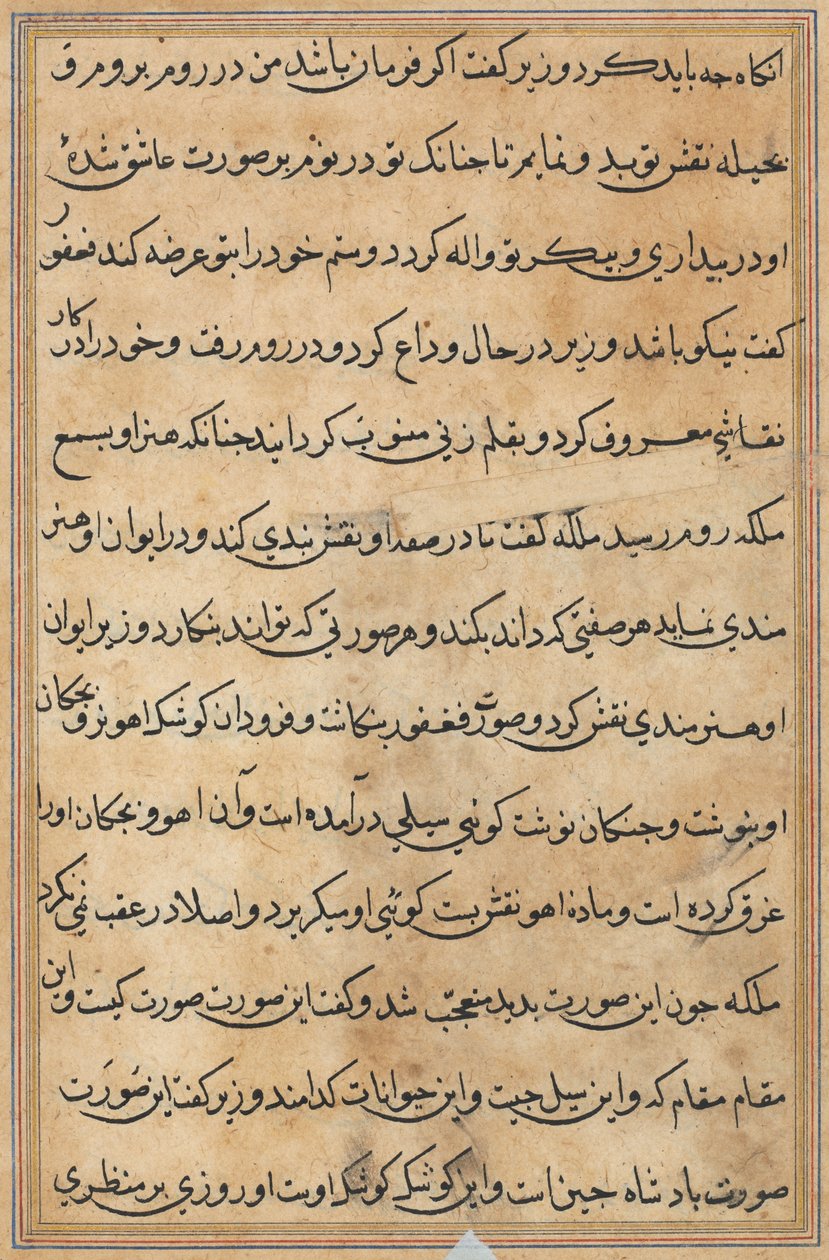 انکاه جه باید کرد وزیر کفت اکر فرمان باشد من در روم بروم و
بحیله نقش تو بد و نمایم تا جنانک تو در نوم بر صورت عاشق شدهٔ
او در بیداری و بیکر تو واله کردد و ستم خود را بتو عرضه کند فغفور
کفت نیکو باشد وزیر در حال وداع کرد و در روم رفت و خود را در کار
نقاشی معروف کرد و بقلم زنی منسوب کردانید جنانکه هنر او بسمع
ملکه روم رسید ملکه کفت تا در صفه او نقش بندی کند و در ایوان او هنر
مندی نماید هر صفتی که داند بکند و هر صورتی که تواند بنکارد وزیر ایوان
او هنرمندی نقش کرد و صورت فغفور بنکاشت و فرود ان کوشک اهو نر و بجکان
او بنوشت و جنکان نوشت کوئی سیلی درآمده است وآن اهو و بجکان اورا
غرق کرده است و ماده اهو نقش بست کوئی او میکریزد و اصلا در عقب نمی نکرد
ملکه جون این صورت بدید متعجب شد و کفت این صورت صورت کیست و این
مقام مقام که و این سیل جیست و این حیوانات کدامند وزیر کفت این صورت
صورت بادشاه جین است و این کوشک کوشک اوست او روزی بر منظری